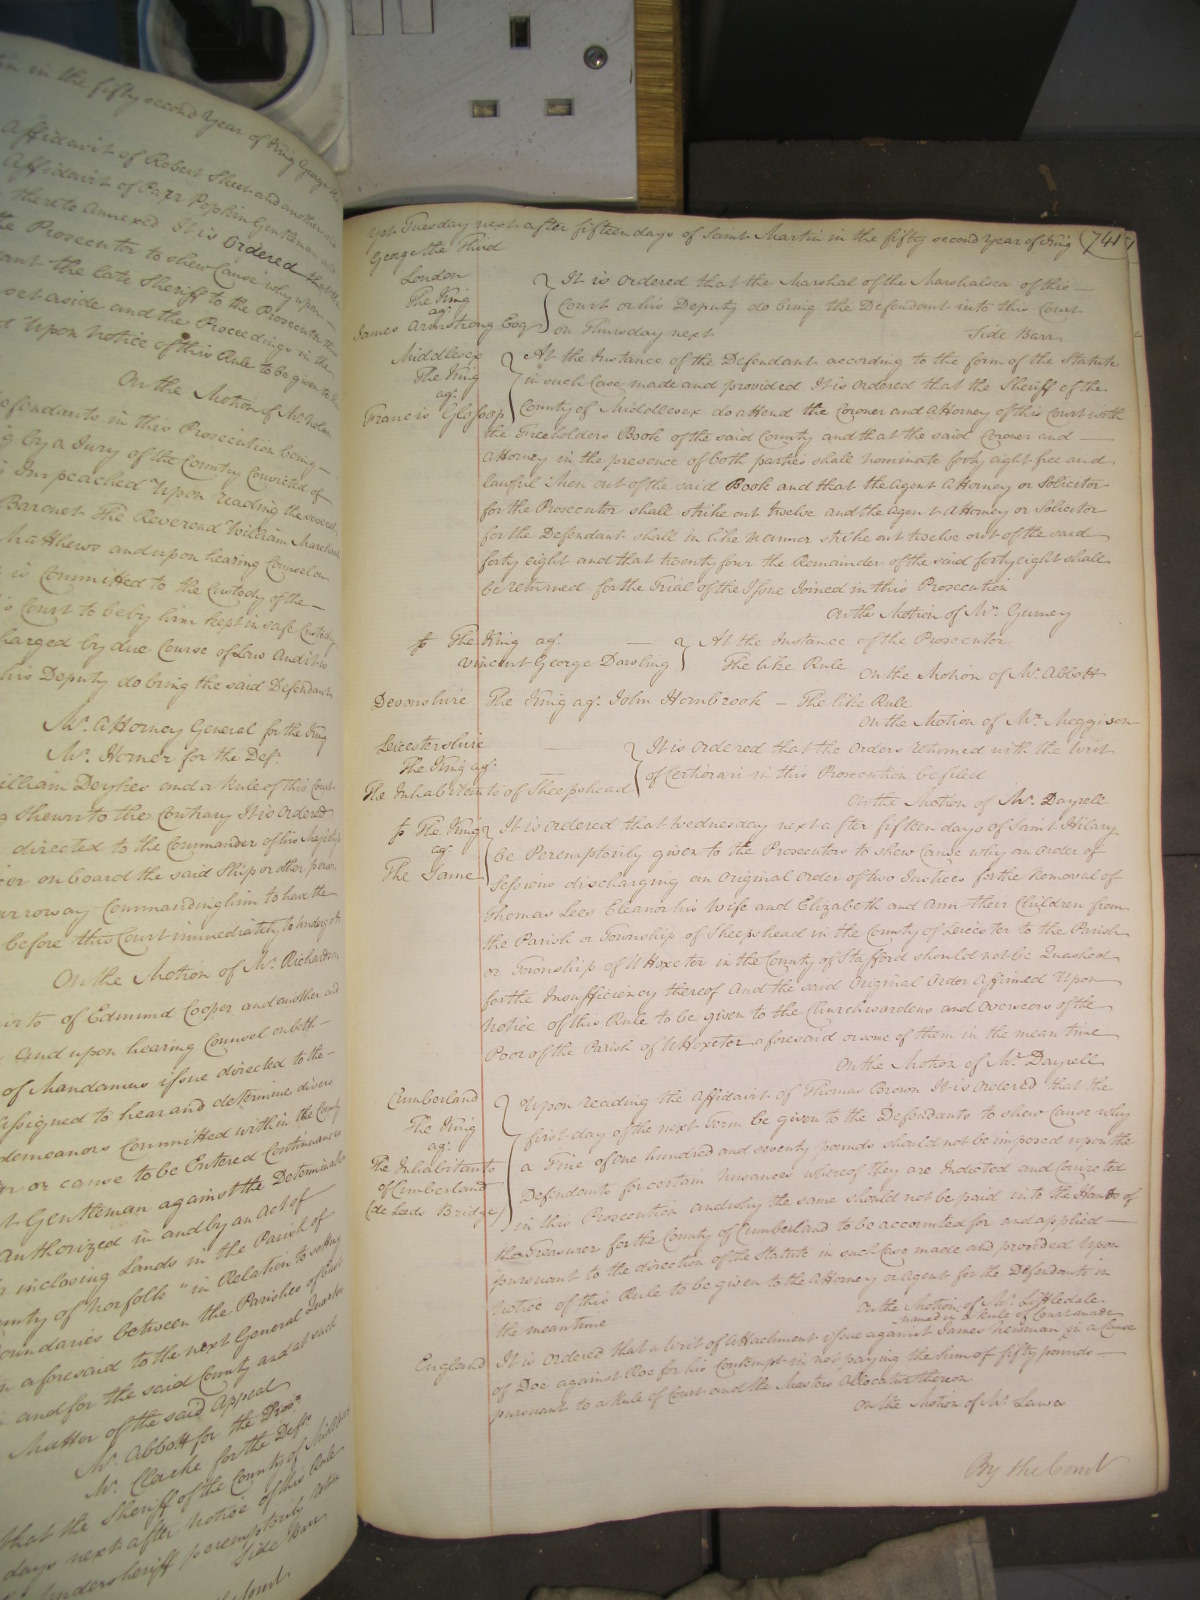 in the fifty second Year of King George the
Affidavit of Robert Skeet and another
Affidavit of Parr Popkin Gentleman and
thereto Annexed It is Ordered that
the Prosecutor to shew Cause why upon
the late Sheriff to the Prosecutor
set aside and the Proceedings in the
Upon Notice of this Rule to be given to
On the Motion of Mr. Nolan
Defendants in this Prosecution being
by a Jury of the Country Convicted of
Impeached Upon reading the several
Baronet The Reverend William Marchant
Matthews and upon hearing Counsel on
is Committed to the Custody of the
Court to be by him kept in safe Custody
by due Course of Law And it is
his Deputy do bring the said Defendant
Mr. Attorney General for the King
Mr. Horner for the Deft.
William Deykes and a Rule of this Court
Shewn to the Contrary It is Ordered
directed to the Commander of his Majesty's
on board the said Ship or other person
Commanding him to have the
before this Court immediately to undergo
On the Motion of Mr. Richardson
of Edmund Cooper and another and
and upon hearing Counsel on both
of Mandamus issue directed to the
assigned to hear and determine divers
Committed within the County
or cause to be Entered Continuances
Gentleman against the Determination
Authorized in and by an Act of
inclosing Lands in the Parish of
County of Norfolk" in Relation to
boundaries between the Parishes of
aforesaid to the next General Quarter
and for the said County and at such
Matter of the said Appeal
Mr. Abbott for the Prosr.
Mr. Clarke for the Deft.
that the Sheriff of the County of
days next after Notice of this Rule
peremptorily
Side Barr
Court
Yet Tuesday next after fifteen days of Saint Martin in the fifty second Year of King (741)
George the Third
London
The King
agt.
James Armstrong Esq
It is Ordered that the Marshal of the Marshalsea of this
Court or his Deputy do bring the Defendant into this Court
on Thursday next
Side Barr
Middlesex
The King
agt.
Francis Glossop
At the Instance of the Defendant according to the form of the Statute
in such Case made and provided It is Ordered that the Sheriff of the
County of Middlesex do attend the Coroner and Attorney of this Court with
the Freeholders Book of the said County and that the said Coroner and
Attorney in the presence of both parties shall nominate forty eight free and
lawful Men out of the said Book and that the Agent Attorney or Solicitor
for the Prosecutor shall strike out twelve and the Agent Attorney or Solicitor
for the Defendant shall in like manner strike out twelve out of the said
forty eight and that twenty four the Remainder of the said forty eight shall
be returned for the Trial of the Issue Joined in this Prosecution
On the Motion of Mr. Gurney
The King agt.
Vincent George Dowling
At the Instance of the Prosecutor
The like Rule
On the Motion of Mr. Abbott
Devonshire The King agt. John Hornbrook – The like Rule
On the Motion of Mr. Meggison
Leicestershire
The King agt.
The Inhabitants of Sheepshead
It is Ordered that the Orders returned with the Writ
of Certiorari in this Prosecution be filed
On the Motion of Mr. Dayrell
The King
agt.
The Same
It is Ordered that Wednesday next after fifteen days of Saint Hilary
be Peremptorily given to the Prosecutors to shew Cause why an Order of
Sessions discharging an Original Order of two Justices for the Removal of
Thomas Lees Eleanor his Wife and Elizabeth and Ann their Children from
the Parish or Township of Sheepshead in the County of Leicester to the Parish
or Township of Uttoxeter in the County of Stafford should not be Quashed
for the Insufficiency thereof And the said Original Order Affirmed Upon
Notice of this Rule to be given to the Churchwardens and Overseers of the
Poor of the Parish of Uttoxeter aforesaid or some of them in the mean time
On the Motion of Mr. Dayrell
Cumberland
The King
agt.
The Inhabitants
of Cumberland
(de Leeds Bridge)
Upon reading the Affidavit of Thomas Brown It is Ordered that the
first day of the next Term be given to the Defendants to shew Cause why
a Fine of One hundred and seventy pounds should not be imposed upon the
Defendants for certain Nusances whereof they are Indicted and Convicted
in this Prosecution and why the same should not be paid into the Hands of
the Treasurer for the County of Cumberland to be accounted for and applied
pursuant to the direction of the Statute in such Case made and provided Upon
Notice of this Rule to be given to the Attorney or Agent for the Defendants in
the mean time
On the Motion of Mr. Littledale
England
named in a Rule of Court made
It is Ordered that a Writ of Attachment issue against James Newman in a Cause
of Doe against Roe for his Contempt in not paying the Sum of fifty pounds
pursuant to a Rule of Court and the Masters Allocatur thereon
On the Motion of Mr. Lawes
By the Court